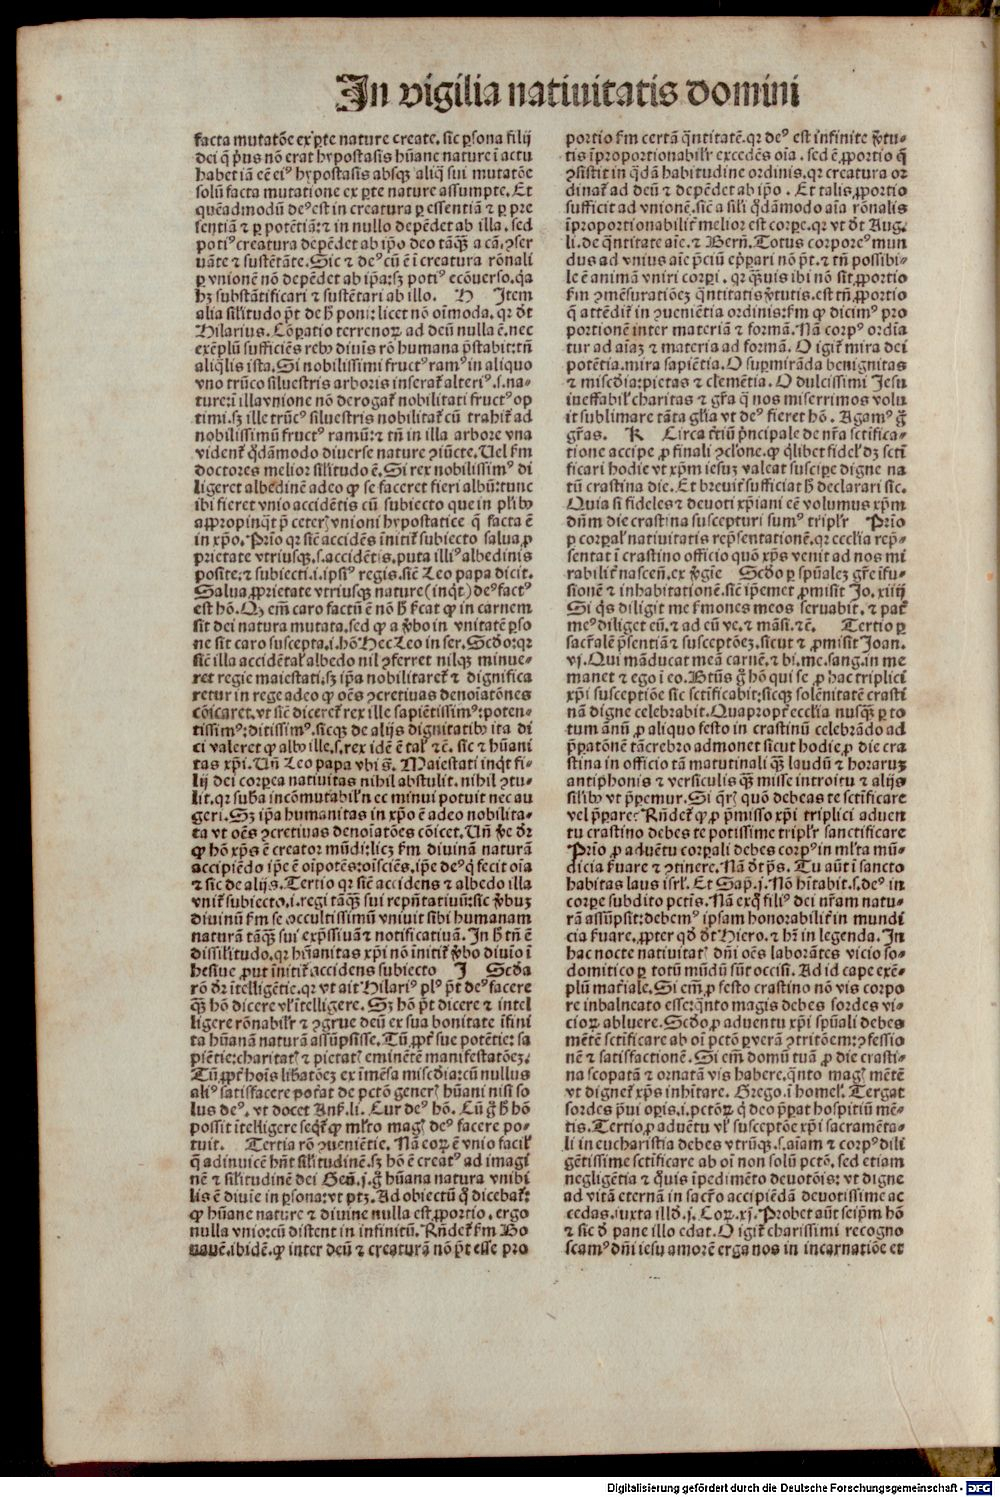 In vigilia natiuitatis domini
facta mutatōe ex ꝑte nature create. sic ꝑsona filij
dei q̄ p̄us nō erat hypostasis hūane nature ī actu
habet iā eē eiꝰ hypostasis absqꝫ aliq̄ sui mutatōe
solū facta mutatione ex ꝑte nature assumpte. Et
quēadmodū deꝰ est in creatura ꝑ essentiā ⁊ ꝑ pre
sentiā ⁊ ꝑ potētiā: ⁊ in nullo depēdet ab illa. sed
potiꝰ creatura depēdet ab ip̄o deo tāqꝫ̄ a cā. ꝯser
uāte ⁊ sustētāte. Sic ⁊ deꝰ cū ē ī creatura rōnali
ꝑ vnionē nō depēdet ab ip̄a: sꝫ potiꝰ ecōuerso. q̄a
hꝫ substātificari ⁊ sustētari ab illo. H Item
alia sil̄itudo pōt de h̄ poni: licet nō oīmoda. qꝛ dt̄
Hilarius. Cōꝑatio terrenoꝝ ad deū nulla ē. nec
exēplū sufficiēs rebꝰ diuīs rō humana p̄stabit: tn̄
aliq̄lis ista. Si nobilissimi fructꝰ ramꝰ in aliquo
vno trūco siluestris arboris inserat̄ alteriꝰ .s. na-
ture: ī illa vnione nō derogat̄ nobilitati fructꝰ op
timi. sꝫ ille trūcꝰ siluestris nobilitat̄ cū trahit̄ ad
nobilissimū fructꝰ ramū: ⁊ tn̄ in illa arbore vna
vident̄ q̄dāmodo diuerse nature ꝯiūcte. Uel ẜm
doctores melior sil̄itudo ē. Si rex nobilissimꝰ di
ligeret albedinē adeo ꝙ se faceret fieri albū: tunc
ibi fieret vnio accidētis cū subiecto que in pl̄ibꝰ
appropinq̄t p̄ ceteris vnioni hypostatice q̄ facta ē
in xp̄o. Prīo qꝛ sic̄ accidēs īnitit̄ subiecto salua ꝓ
prietate vtriusqꝫ .s. accidētis. puta illiꝰ albedinis
posite: ⁊ subiecti .i. ipsiꝰ regis. sic̄ Leo papa dicit.
Salua ꝓprietate vtriusqꝫ nature (inq̄t) deꝰ factꝰ
est hō. Q̄ em̄ caro factū ē nō h̄ ẜcat ꝙ in carnem
sit dei natura mutata. sed ꝙ a v̄bo in vnitatē ꝑso
ne sit caro suscepta. i. hō Hec Leo in ser. Scd̄o: qꝛ
sic̄ illa accidētal̄ albedo nil ꝯferret nilqꝫ minue-
ret regie maiestati: sꝫ ip̄a nobilitaret̄ ⁊ dignifica
retur in rege adeo ꝙ oēs ꝯcretiuas denoīatōnes
cōicaret. vt sic̄ diceret̄ rex ille sapiētissimꝰ: poten-
tissimꝰ: ditissimꝰ. sicqꝫ de alijs dignitatibꝰ ita di
ci valeret ꝙ albꝰ ille .s. rex idē ē tal̄ ⁊c̄. sic ⁊ hūani
tas xp̄i. Un̄ Leo papa vbi s̄. Maiestati inq̄t fi-
lij dei corꝑea natiuitas nihil abstulit. nihil ꝯtu-
lit. qꝛ sub̄a incōmutabil̄ nec minui potuit nec au
geri. Sꝫ ip̄a humanitas in xp̄o ē adeo nobilita-
ta vt oēs ꝯcretiuas denoīatōes cōicet. Un̄ v̄e dr̄
ꝙ hō xp̄s ē creator mūdi: licꝫ ẜm diuinā naturā
accipiēdo ip̄e ē oīpotēs: oīsciēs. ip̄e deꝰ q̄ fecit oīa
⁊ sic de alijs. Tertio qꝛ sic̄ accidens ⁊ albedo illa
vnit̄ subiecto .i. regi tāqꝫ̄ sui rep̄ntatiuū: sic v̄bum
diuinū ẜm se occultissimū vniuit sibi humanam
naturā tāqꝫ̄ sui exp̄ssiuā ⁊ notificatiuā. In h̄ tn̄ ē
dissil̄itudo. qꝛ hūanitas xp̄i nō īnitit̄ v̄bo diuīo ī
hesiue ꝓut īnitit̄ accidens subiecto I Scd̄a
rō dr̄ ītelligētie. qꝛ vt ait Hilariꝰ plꝰ pōt deꝰ facere
qꝫ̄ hō dicere vl̄ ītelligere. Sꝫ hō pōt dicere ⁊ intel
ligere rōnabilr̄ ⁊ ꝯgrue deū ex sua bonitate īfini
ta hūanā naturā assūpsisse. Tū ꝓpt̄ sue potētie: sa
piētie: charitatis ⁊ pietatis eminētē manifestatōeꝫ.
Tū ꝓpt̄ hoīs lib̄atōeꝫ ex īmēsa misc̄dia: cū nullus
aliꝰ satisfacere poterat de pctō generis hūani nisi so
lus deꝰ. vt docet Ans̄. li. Cur deꝰ hō. Cū g̊ h̄ hō
possit ītelligere seqt̄ ꝙ ml̄to magis deꝰ facere po-
tuit. Tertia rō ꝯueniētie. Nā eorꝝ ē vnio facil̄
q̄ adinuicē hn̄t sil̄itudinē. sꝫ hō ē creatꝰ ad imagi
nē ⁊ sil̄itudinē dei Gen̄. j. g̊ hūana natura vnibi
lis ē diuīe in ꝑsona: vt ptꝫ. Ad obiectū q̄ dicebat̄:
ꝙ hūane nature ⁊ diuine nulla est ꝓportio. ergo
nulla vnio: cū distent in infinitū. Rn̄det̄ ẜm Bo
nauē. ibidē. ꝙ inter deū ⁊ creaturā nō pōt esse pro
portio ẜm certā q̄ntitatē. qꝛ deꝰ est infinite v̄tu-
tis īproportionabilr̄ excedēs oīa. sed ē ꝓportio q̄
ꝯsistit in q̄dā habitudine ordinis. qꝛ creatura or
dinat̄ ad deū ⁊ depēdet ab ip̄o. Et talis ꝓportio
sufficit ad vnionē. sic̄ a sil̄i q̄dāmodo aīa rōnalis
īproportionabilit̄ melior est corꝑe. qꝛ vt dt̄ Aug.
li. de q̄ntitate aīe. ⁊ Bern̄. Totus corporeꝰ mun
dus ad vnius aīe p̄ciū cōꝑari nō pōt. ⁊ tn̄ possibi-
le ē animā vniri corꝑi. qꝛ qꝫuis ibi nō sit ꝓportio
ẜm ꝯmēsuratiōeꝫ q̄ntitatis v̄tutis. est tn̄ ꝓportio
q̄ attēdit̄ in ꝯueniētia ordinis: ẜm ꝙ dicimꝰ pro
portionē inter materiā ⁊ formā. Nā corpꝰ ordīa
tur ad aīaꝫ ⁊ materia ad formā. O igit̄ mira dei
potētia. mira sapiētia. O suꝑmirāda benignitas
⁊ misc̄dia: pietas ⁊ clemētia. O dulcissimi Iesu
ineffabil̄ charitas ⁊ gr̄a q̄ nos miserrimos volu
it sublimare tāta gl̄ia vt deꝰ fieret hō. Agamꝰ g̊
gr̄as. K Circa t̄tiū p̄ncipale de nr̄a sctifica-
tione accipe ꝓ finali ꝯcl̄one. ꝙ q̄libet fidel̄ dꝫ scti
ficari hodie vt xp̄m iesuꝫ valeat suscipe digne na
tū crastina die. Et breuit̄ sufficiat h̄ declarari sic.
Quia si fideles ⁊ deuoti xp̄iani eē volumus xp̄m
dn̄m die crastina suscepturi sumꝰ triplr̄ Prīo
ꝑ corꝑal̄ natiuitatis rep̄sentationē. qꝛ ecclīa rep̄-
sentat ī crastino officio quō xp̄s venit ad nos mi
rabilit̄ nascen̄. ex v̄gīe Scd̄o ꝑ spūaleꝫ gr̄e īfu-
sionē ⁊ inhabitationē. sic̄ ip̄emet ꝓmisit Io. xiiij
Si q̄s diligit me ẜmones meos seruabit. ⁊ pat̄
meꝰ diliget eū. ⁊ ad eū ve. ⁊ māsi. ⁊c̄. Tertio ꝑ
sacr̄ale p̄sentiā ⁊ susceptōeꝫ. sicut ⁊ ꝓmisit Ioan.
vj. Qui māducat meā carnē. ⁊ bi. me. sang. in me
manet ⁊ ego ī eo. Btūs g̊ hō qui se ꝓ hac triplici
xp̄i susceptiōe sic sctificabit: sicqꝫ solēnitatē crasti
nā digne celebrabit. Quapropt̄ ecclīa nusqꝫ̄ ꝑ to
tum ānū ꝓ aliquo festo in crastinū celebrādo ad
p̄ꝑatōnē tā crebro admonet sicut hodie ꝓ die cra
stina in officio tā matutinali qꝫ̄ laudū ⁊ horaruꝫ
antiphonis ⁊ versiculis qꝫ̄ misse introitu ⁊ alijs
sil̄ibꝰ vt p̄ꝑemur. Si q̄ris quō debeas te sctificare
vel p̄ꝑare: Rn̄det̄ ꝙ ꝓ p̄misso xp̄i triplici aduen
tu crastino debes te potissime triplr̄ sanctificare
Prīo ꝓ aduētu corꝑali debes corpꝰ in ml̄ta mū-
dicia ẜuare ⁊ ꝯtinere. Nā dt̄ ps̄. Tu aūt ī sancto
habitas laus isrl̄. Et Sap. j. Nō hītabit .s. deꝰ in
corꝑe subdito pctīs. Nā ex q̄ filiꝰ dei nr̄am natu-
rā assūpsit: debemꝰ ipsam honorabilit̄ in mundi
cia ẜuare. ꝓpter qd̄ dt̄ Hiero. ⁊ hr̄ in legenda. In
hac nocte natiuitatis dn̄i oēs laborātes vicio so-
domitico ꝑ totū mūdū sūt occisi. Ad id cape exē-
plū mat̄iale. Si em̄ ꝓ festo crastino nō vis corpo
re inbalneato esse: q̄nto magis debes sordes vi-
cioꝝ abluere. Scd̄o ꝓ aduentu xp̄i spūali debes
mentē sctificare ab oī pctō ꝑ verā ꝯtritōem: ꝯfessio
nē ⁊ satisfactionē. Si em̄ domū tuā ꝓ die crasti-
na scopatā ⁊ ornatā vis habere. q̄nto magis mētē
vt dignet̄ xp̄s inhītare. Grego. ī homel̄. Tergat
sordes p̄ui oꝑis .i. pctōꝝ q̄ deo p̄ꝑat hospitiū mē-
tis. Tertio. ꝓ aduētu vl̄ susceptōe xp̄i sacramēta-
li in eucharistia debes vtrūqꝫ .s. aīam ⁊ corpꝰ dili
gētissime sctificare ab oī non solū pctō. sed etiam
negligētia ⁊ q̄uis īpedimēto deuotōis: vt digne
ad vitā eternā in sacr̄o accipiēdā deuotissime ac
cedas. iuxta illd̄. j. Cor. xj. Probet aūt seip̄m hō
⁊ sic d̄ pane illo edat. O igit̄ charissimi recogno
scamꝰ dn̄i iesu amorē erga nos in incarnatiōe et
Digitalisierung gefördert durch die Deutsche Forschungsgemeinschaft - DFG